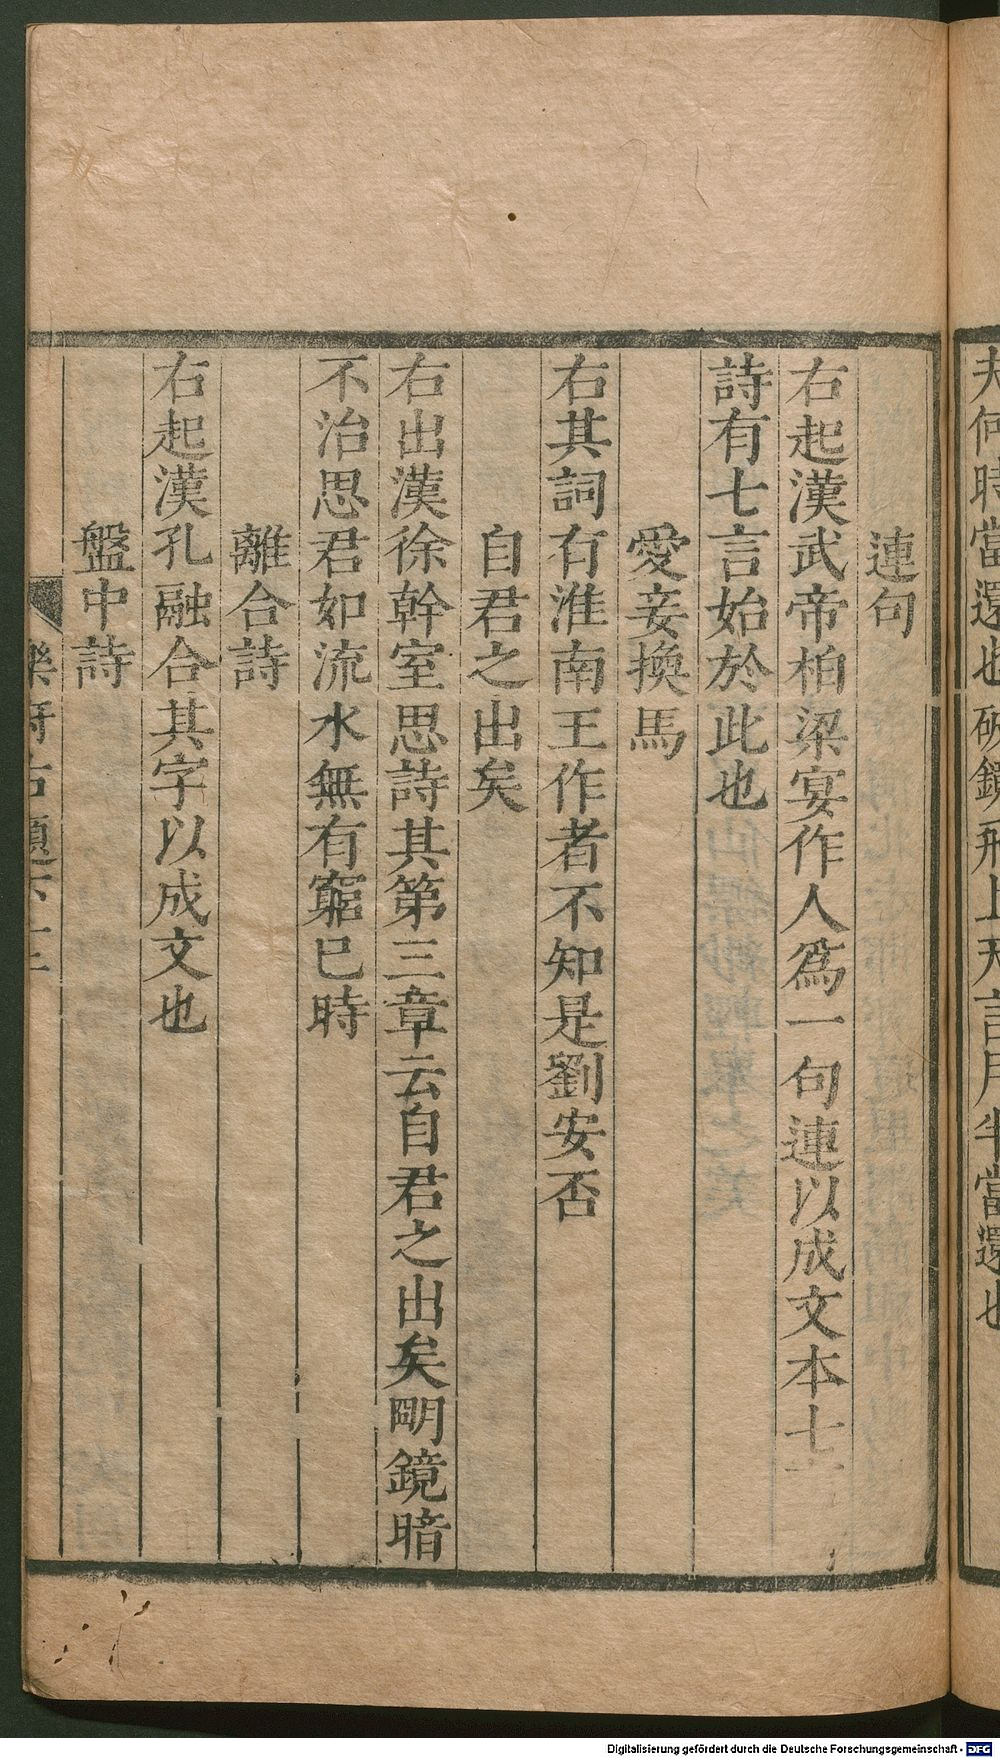 夫何時當還也破鏡飛上天言月半當還也
連句
右起漢武帝柏梁宴作人爲一句連以成文本七
詩有七言始於此也
愛妾換馬
右其詞有淮南王作者不知是劉安否
自君之出矣
右出漢徐幹室思詩其第三章云自君之出矣明鏡暗
不治思君如流水無有窮已時
離合詩
右起漢孔融合其字以成文也
盤中詩
樂府古題下
Digitalisierung gefördert durch die Deutsche Forschungsgemeinschaft - DFG